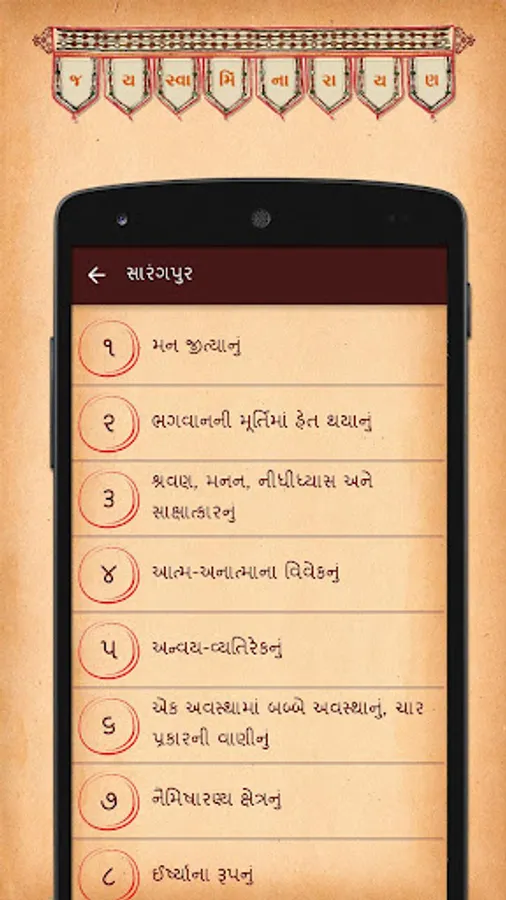 જ ય સ્વા મિ ના રા ય ણ
સારંગપુર
૧ મન જીત્યાનું
૨ ભગવાનની મૂર્તિમાં હેત થયાનું
૩ શ્રવણ, મનન, નીધીધ્યાસ અને
સાક્ષાત્કારનું
૪ આત્મ-અનાત્માના વિવેકનું
૫ અન્વય-વ્યતિરેકનું
૬ એક અવસ્થામાં બબ્બે અવસ્થાનું, ચાર
પ્રકારની વાણીનું
૭ નૈમિષારણ્ય ક્ષેત્રનું
૮ ઈર્ષ્યાના રૂપનું